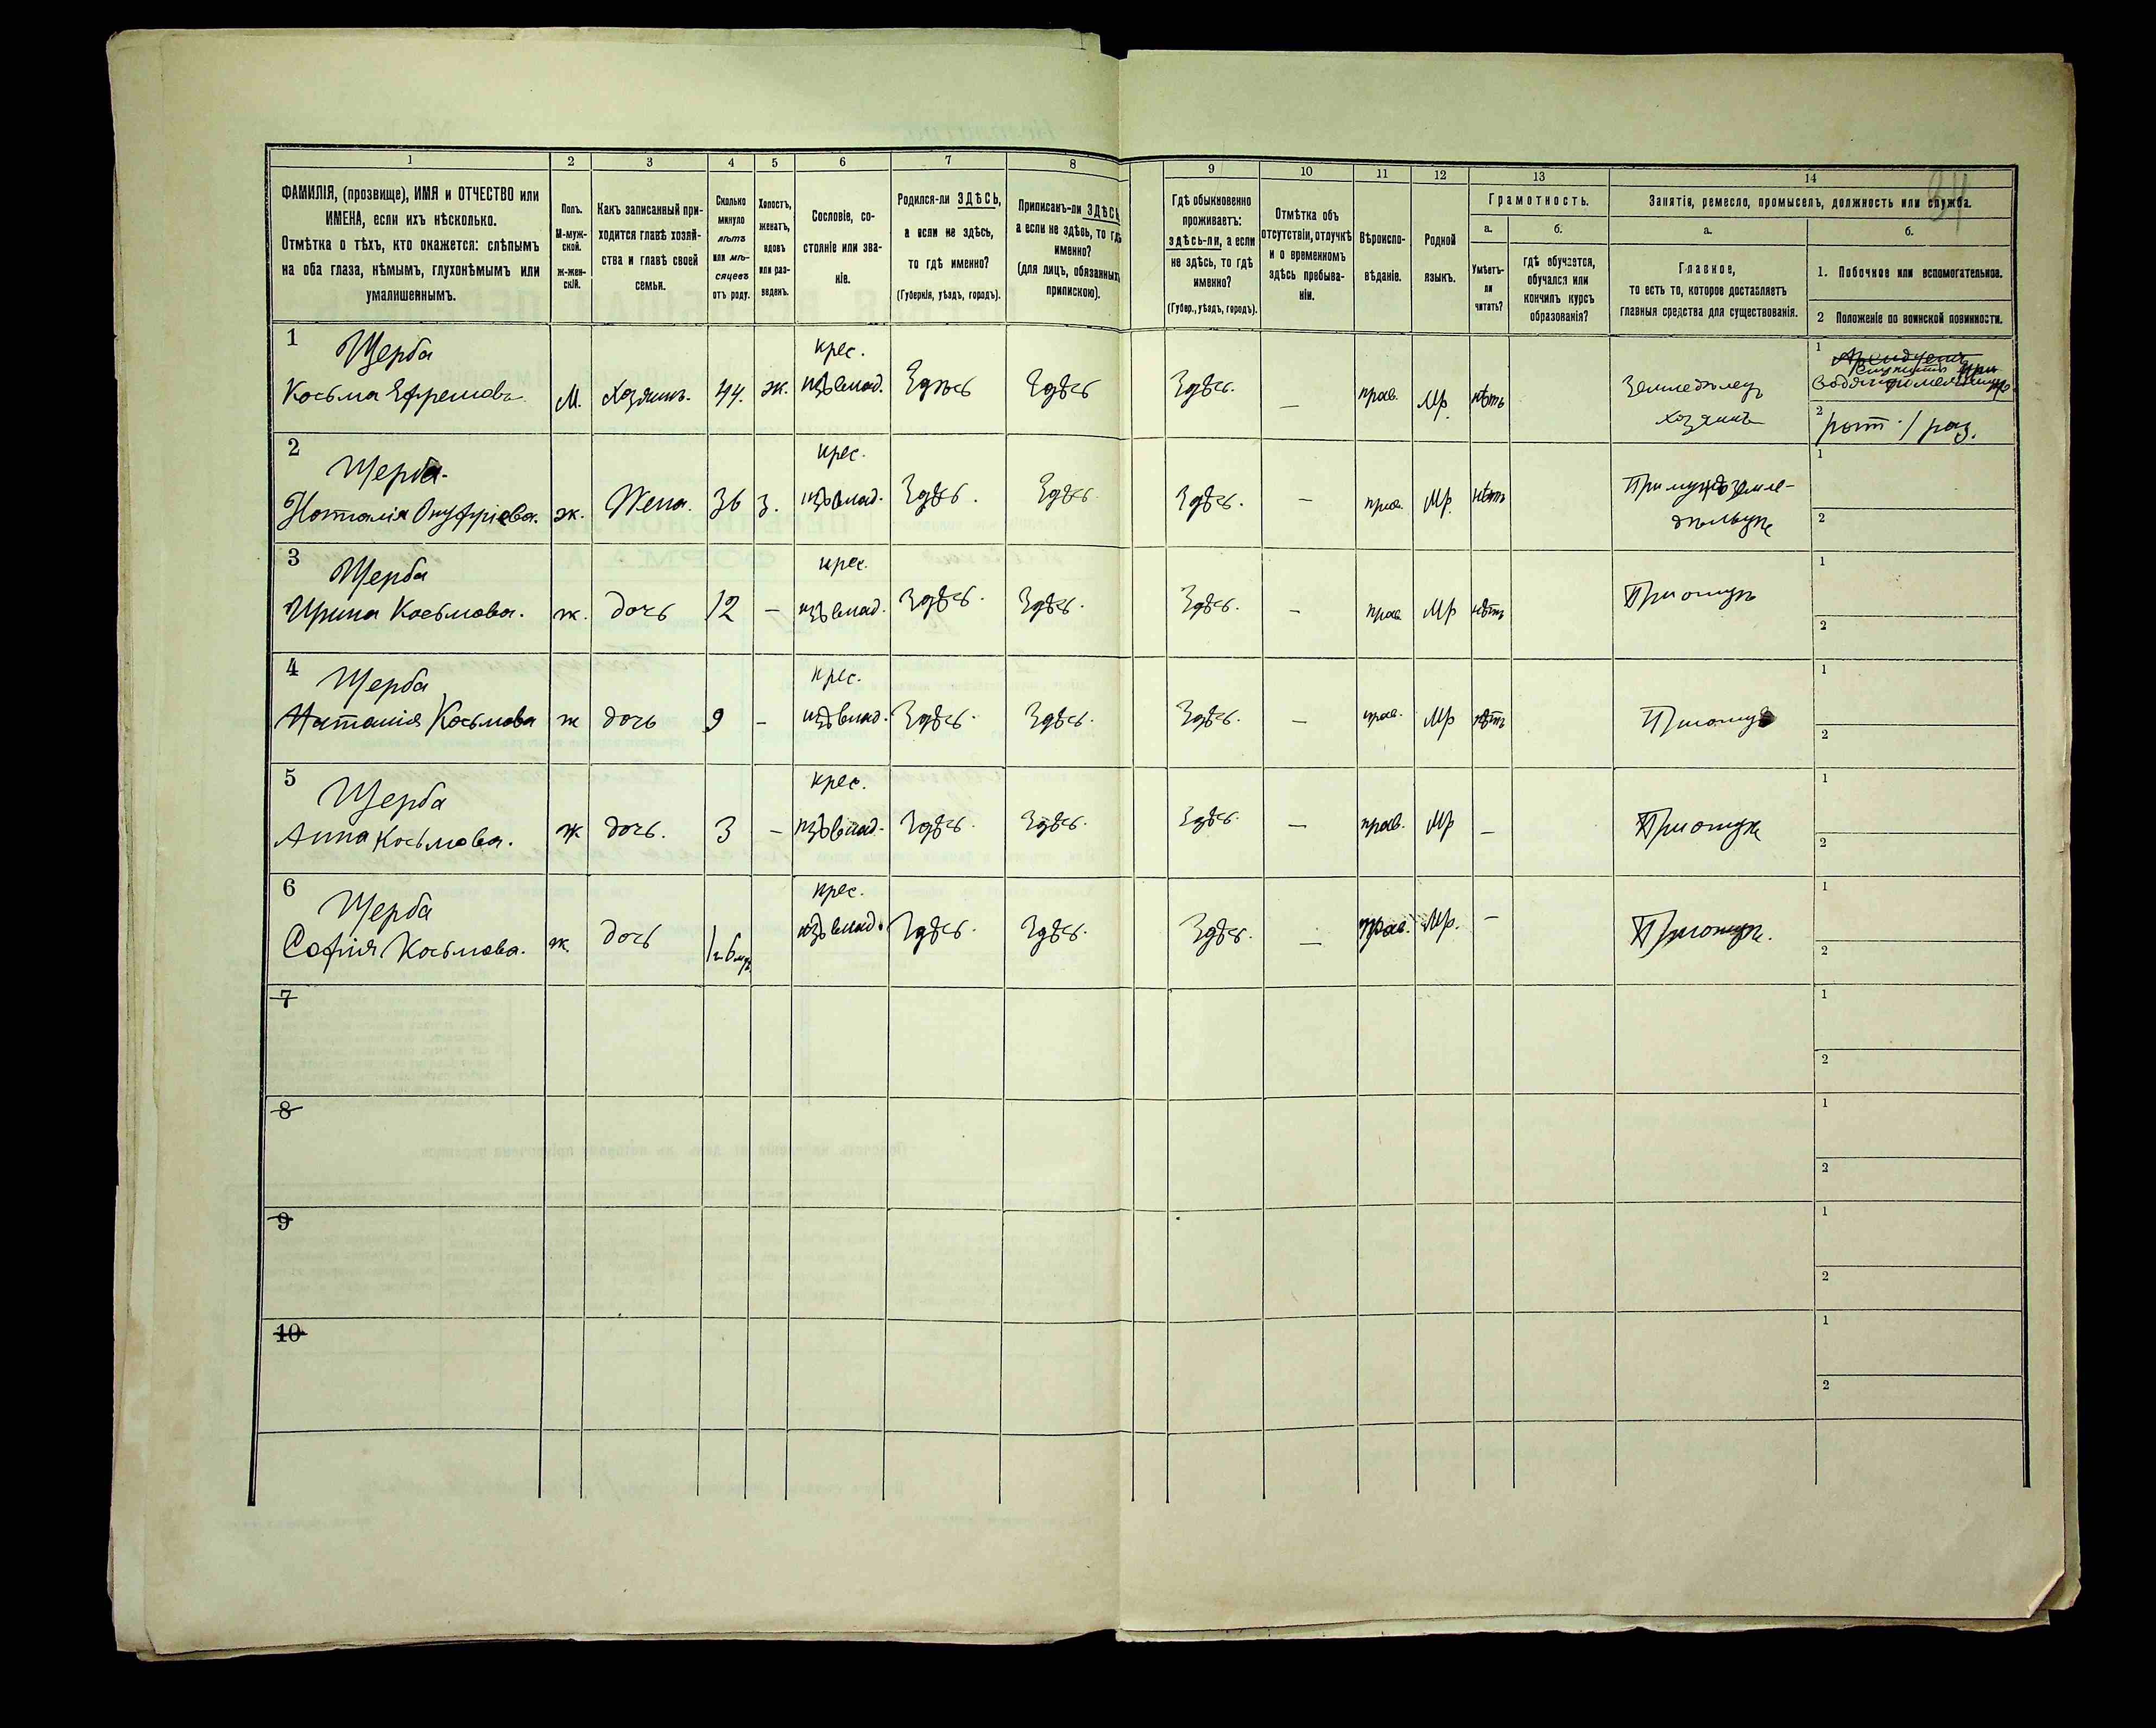 34
1 2 3 4 5 6 7 8 9 10 11 12 13 14
ФАМИЛІЯ, (прозвище), ИМЯ и ОТЧЕСТВО или
ИМЕНА, если ихъ нѣсколько.
Отмѣтка о тѣхъ, кто окажется: слѣпымъ
на оба глаза, нѣмымъ, глухонѣмымъ или
умалишеннымъ.
Полъ.
М-муж-
ской.
ж-жен-
скій.
Какъ записанный при-
ходится главѣ хозяй-
ства и главѣ своей
семьи.
Сколько
минуло
лѣтъ
или мѣ-
сяцевъ
отъ роду.
Холостъ,
женатъ,
вдовъ
или раз-
веденъ.
Сословіе, со-
стояніе или зва-
ніе.
Родился-ли ЗДѢСЬ,
а если не здѣсь,
то гдѣ именно?
(Губернія, уѣздъ, городъ).
Приписанъ-ли ЗДѢСЬ,
а если не здѣсь, то гдѣ
именно?
(для лицъ, обязанныхъ
припискою).
Гдѣ обыкновенно
проживаетъ:
здѣсь-ли, а если
не здѣсь, то гдѣ
именно?
(Губер., уѣздъ, городъ).
Отмѣтка объ
отсутствіи, отлучкѣ
и о временномъ
здѣсь пребыва-
ніи.
Вѣроиспо-
вѣданіе.
Родной
языкъ.
Грамотность.
а.
Умѣетъ-
ли
читать?
б.
гдѣ обучается,
обучался или
кончилъ курсъ
образованія?
Занятія, ремесло, промыселъ, должность или служба.
а.
Главное,
то есть то, которое доставляетъ
главныя средства для существованія.
б.
1. Побочное или вспомогательное.
2 Положеніе по воинской повинности.
1 Щерба крес. 1
Косьма Ефремовъ. М. Хозяинъ. 44. ж. изъ влад. Здѣсь Здѣсь Здѣсь. — прав. Мр. нѣтъ Земледѣлец
хозяинъ 2
2 Щерба. крес. 1
Наталія Онуфріева. ж. Жена. 36 з. изъ влад. Здѣсь. Здѣсь. Здѣсь. — прав. Мр. нѣтъ При мужѣ земле-
дѣльцѣ 2
3 Щерба крес. 1
Ирина Косьмова. ж. дочь 12 — изъ влад. Здѣсь. Здѣсь. Здѣсь. — прав. Мр нѣтъ При отцѣ
2
4 Щерба крес. 1
Наталія Косьмова ж дочь 9 — изъ влад. Здѣсь. Здѣсь. Здѣсь. — прав. Мр нѣтъ При отцѣ
2
5 Щерба крес. 1
Анна Косьмова. ж дочь. 3 — изъ влад. Здѣсь. Здѣсь. Здѣсь. — прав. Мр — При отцѣ
2
6 Щерба крес. 1
Софія Косьмова. ж. дочь изъ влад. Здѣсь. Здѣсь. Здѣсь. — прав. Мр. — При отцѣ.
2
7 1
2
8 1
2
9 1
2
10 1
2